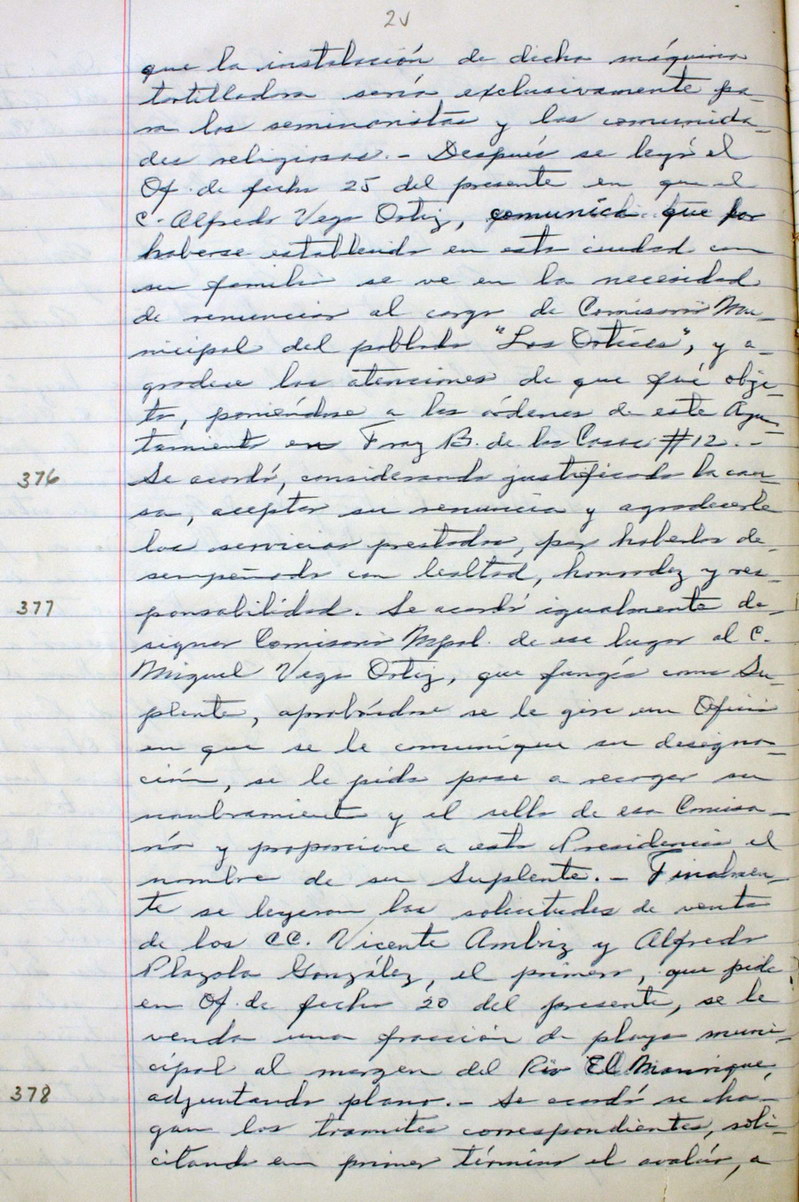 2v
que la instalación de dicha máquina
tortilladora sería exclusivamente pa-
ra los seminaristas y las comunida-
des religiosas.- Después se leyó el
Of. de fecha 25 del presente en que el
C. Alfredo Vega Ortiz, comunica que por
haberse establecido en esta ciudad con
su familia se ve en la necesidad
de renunciar al cargo de Comisario Mu-
nicipal del poblado "Los Ortices", y a-
gradece las atenciones de que fué obje-
to, poniéndose a las órdenes de este Ayun-
tamiento en Fray B. de las Casas #12.-
376 Se acordó, considerando justificada la cau-
sa, aceptar su renuncia y agradecerle
los servicios prestados, por haberlos de-
sempeñado con lealtad, honradez y res-
377 ponsabilidad. Se acordó igualmente de-
signar Comisario Mpal. de ese lugar al C.
Miguel Vega Ortiz, que fungía como Su-
plente, aprobándose se le gire un Oficio
en que se le comunique su designa-
ción, se le pida pase a recoger su
nombramiento y el sello de esa Comisa-
ría y proporcione a esta Presidencia el
nombre de su Suplente.- Finalmen-
te se leyeron las solicitudes de venta
de los CC. Vicente Ambriz y Alfredo
Plazola González, el primero, que pide
en Of. de fecha 20 del presente, se le
venda una fracción de playa muni-
cipal al margen del Río El Manrique,
378 adjuntando plano.- Se acordó se ha-
gan los tramites correspondientes, soli-
citando en primer término el avalúo, a